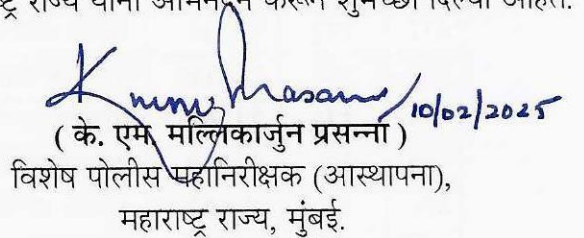 राज्य यांनी अभिनंदन करून शुभेच्छा दिल्या आहेत.
10/02/2025
( के. एम. मल्लिकार्जुन प्रसन्ना )
विशेष पोलीस महानिरीक्षक (आस्थापना),
महाराष्ट्र राज्य, मुंबई.